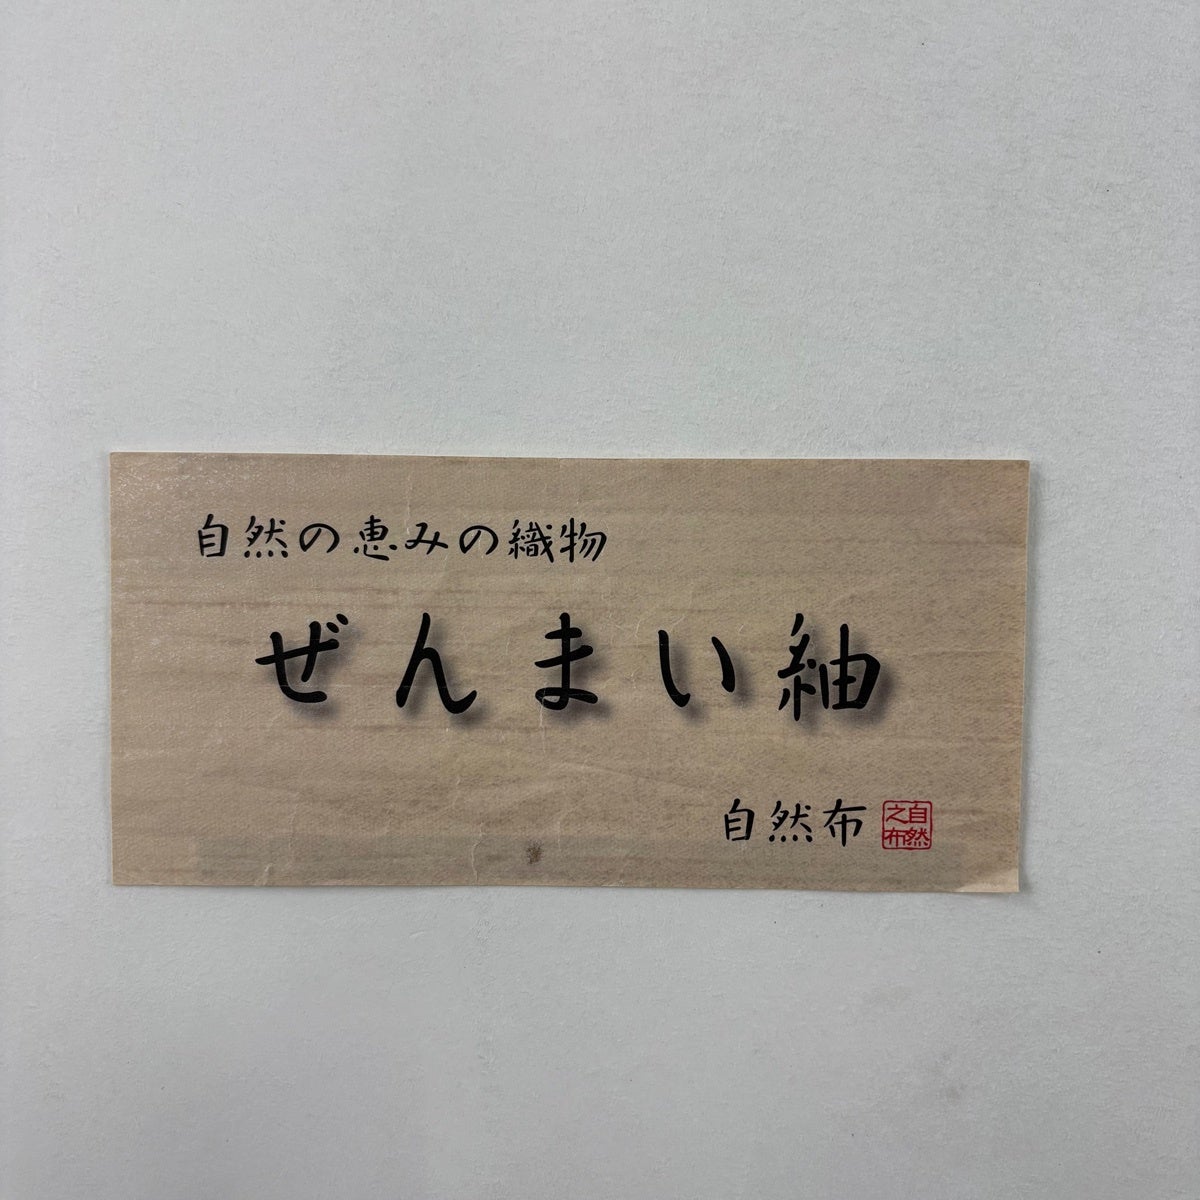 自然の恵みの織物
ぜんまい紬
自然布
自然之布